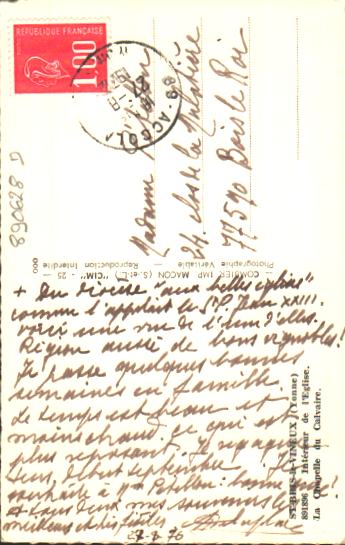 RÉPUBLIQUE FRANÇAISE
1.00
89 - ACCOL
Madame
24 clos de la
77590 Bois le Roi
890628 D
COMBIER IMP. MACON (S.-et-L.) "CIM" - 25 -
Photographie Véritable - Reproduction Interdite
000
+ Du diocèse "aux belles églises"
comme l'appelait le St P. Jean XXIII.
voici une vue de l'une d'elles.
Région aussi de bons vignobles!
Je passe quelques bonnes
semaines en famille.
Le temps est beau et
moins chaud. ce qui est
plus reposant. Je regagnerai
Sens, début septembre. Je
souhaite à Mme Petillon: bonne
à tous deux mes souvenirs les
meilleurs et
27-8-76
ST-BRIS-le-VINEUX (Yonne)
891896 - Intérieur de l'Eglise.
La Chapelle du Calvaire.